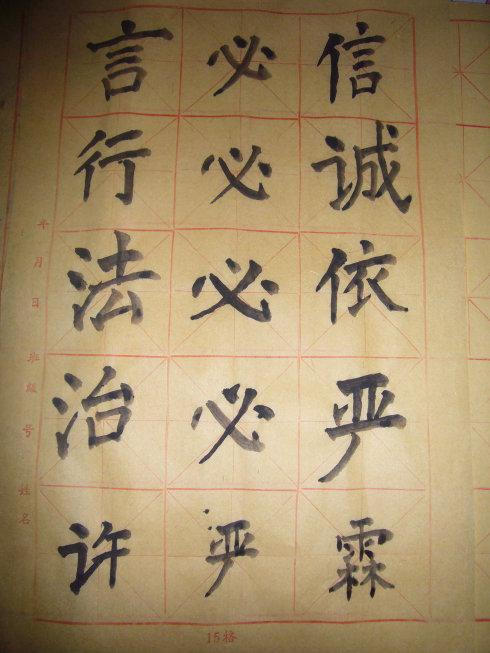 言必信
行必诚
法必依
治必严
许严霖
年月日 班级 号 姓名
15格